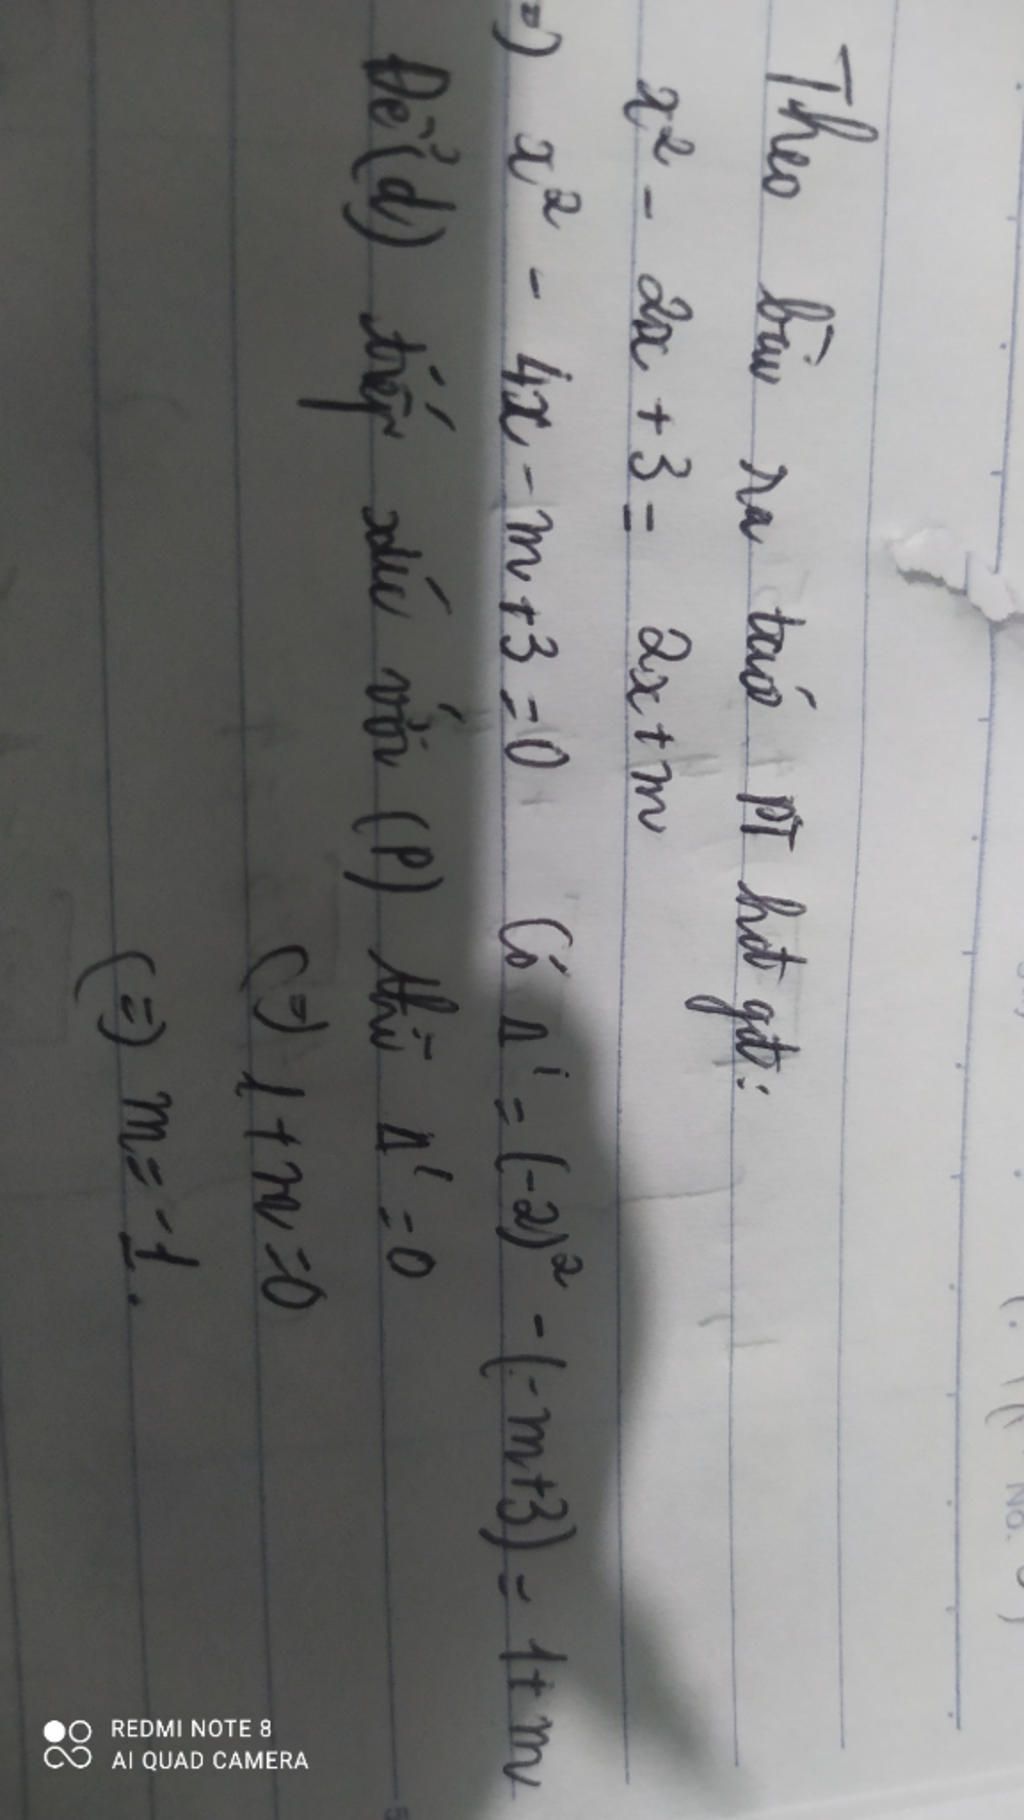 Theo bài ra ta có PT hđ gđ:
x² - 2x + 3 = 2x + m
=) x² - 4x - m + 3 = 0 Có Δ' = (-2)² - (-m+3) = 1 + m
Để (d) tiếp xúc với (P) thì Δ' = 0
(=) 1 + m = 0
(=) m = -1.
REDMI NOTE 8
AI QUAD CAMERA